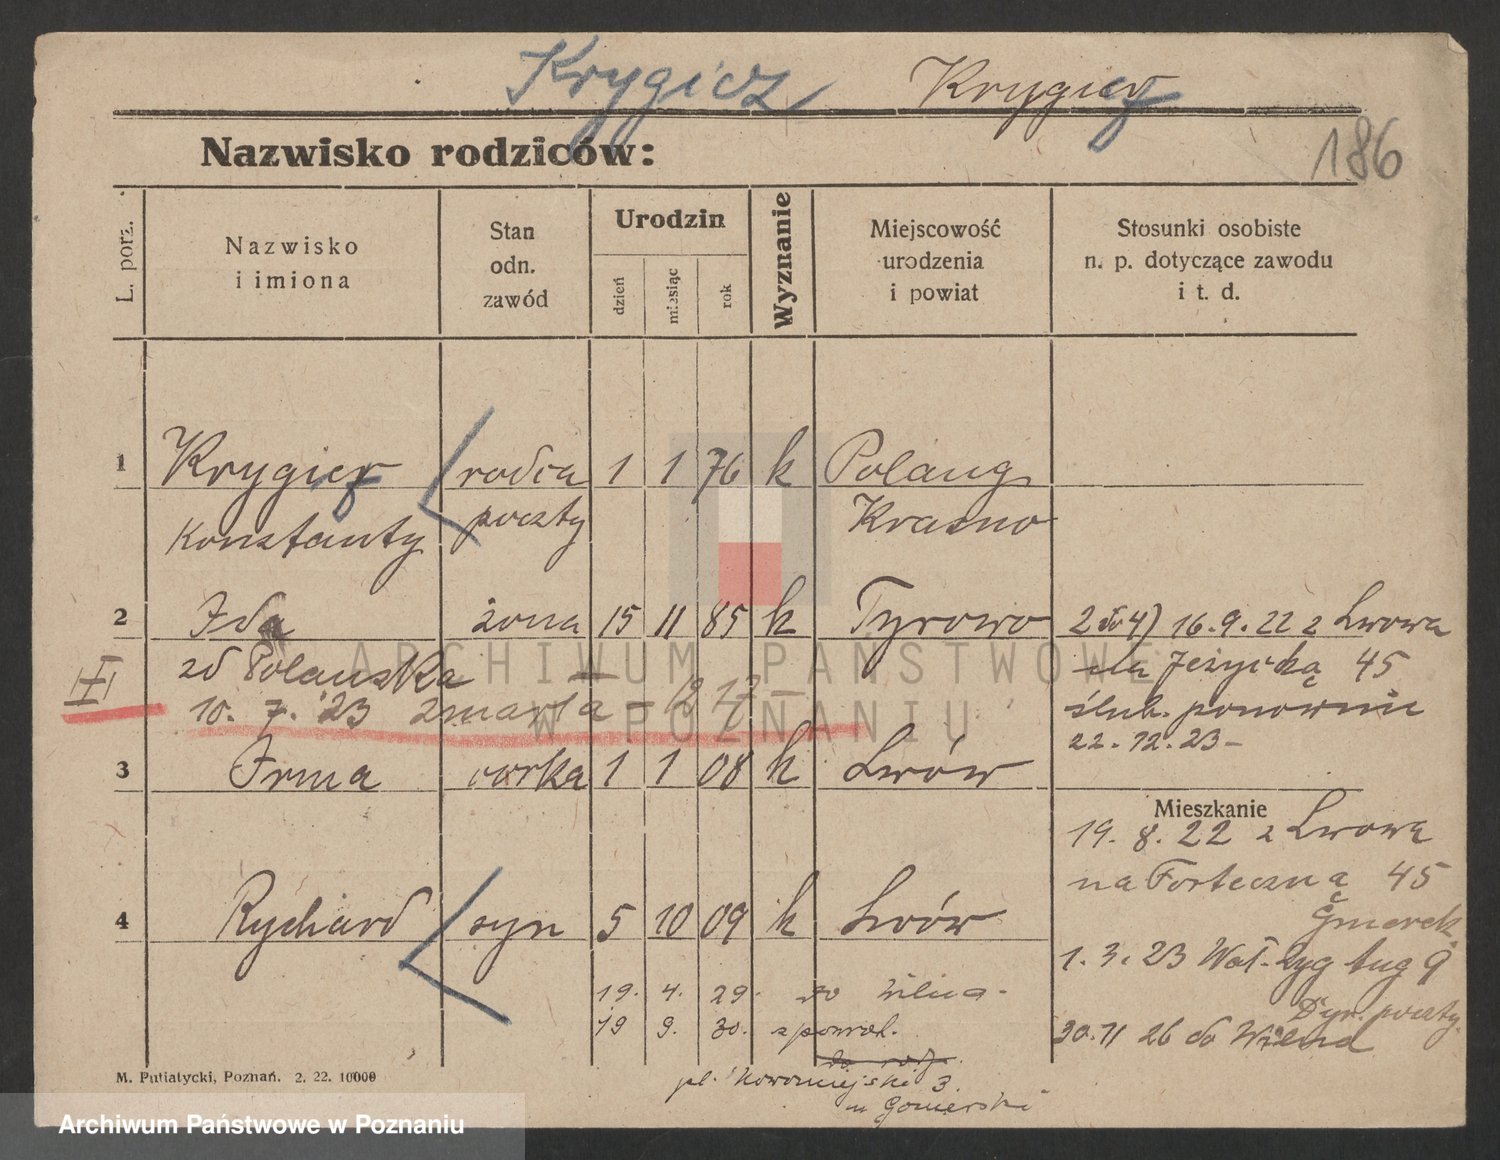 Krygicz Krygicz
186
Nazwisko rodziców:
L. porz.
Nazwisko
i imiona
Stan
odn.
zawód
Urodzin
dzień
miesiąc
rok
Wyznanie
Miejscowość
urodzenia
i powiat
Stosunki osobiste
n. p. dotyczące zawodu
i t. d.
1 Krygicz radca 1 1 76 k Polang
Konstanty poczty Krasno
2 Ida żona 15 11 85 k Tyrowo 2 do 4) 16.9.22 z Lwowa
zd Polanska Jeżycką 45
III 10. 7. 23 zmarła ponownie
22.12.23 -
3 Irma córka 1 1 08 k Lwów
Mieszkanie
19. 8. 22 z Lwowa
na Forteczną 45
4 Rychard syn 5 10 09 k Lwów
1. 3. 23 Wał Zyg Aug 9
19. 4. 29. do Wilna -
Dyr. poczty
19 9. 30. z powrot.
30.11 26 do Wilna
pl. Nowomiejski 3.
M. Putiatycki, Poznań. 2. 22. 10000
ARCHIWUM PAŃSTWOWE
W POZNANIU
Archiwum Państwowe w Poznaniu